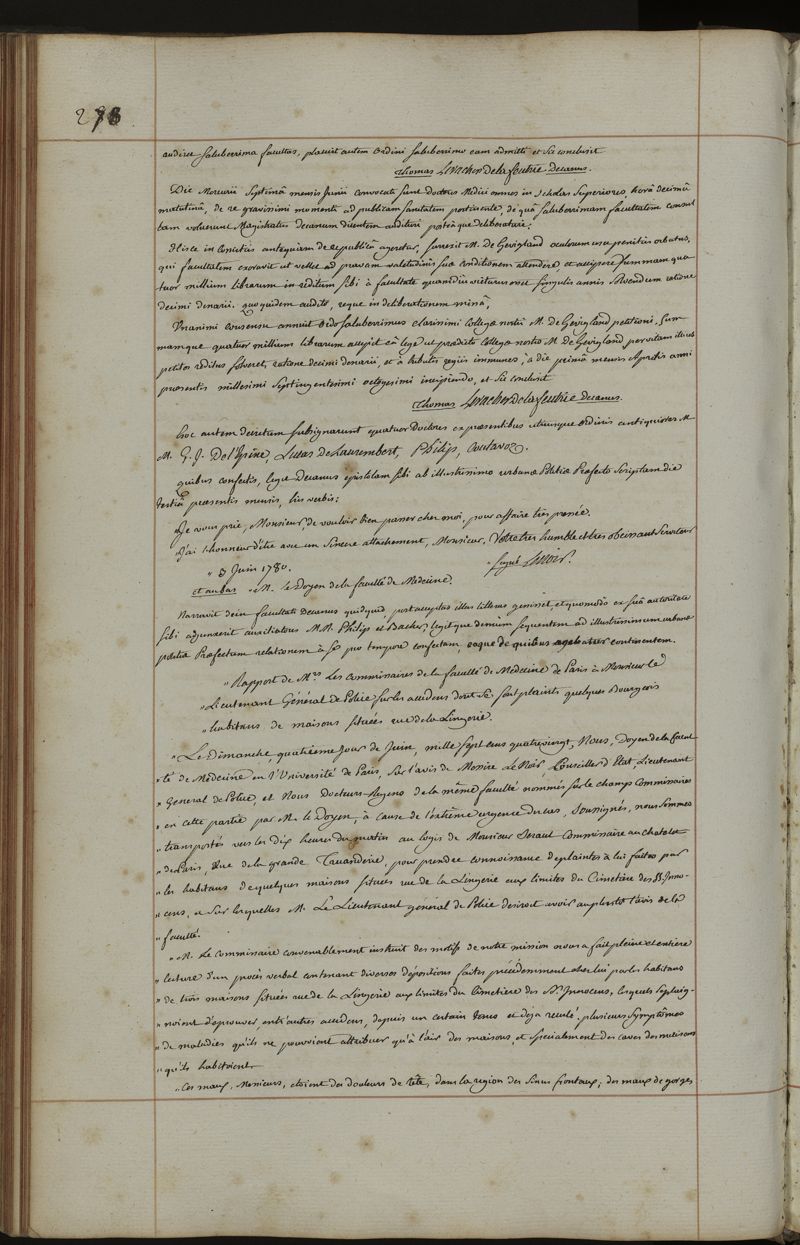 278
audire saluberrima facultas, placuit autem Ordini saluberrimo eam admitti et sic conclusit
Thomas Levacher De la feutrie Decanus.
Die Mercurii Septimâ mensis Junii convocati sunt Doctores Medici omnes in scholas superiores, horâ decimâ
matutinâ, de re gravissimi momenti ad publicam sanitatem pertinente, de quâ saluberrimam facultatem consul
tam voluerunt Magistratus decanum dicentem audituri posteà que deliberaturi.
Hisce in Comitiis antequam de republicâ ageretur, surrexit M. De Gevigland oculorum usu penitus orbatus,
qui facultatem exoravit ut vellet ad pravam valetudinis suæ conditionem attendere, et accipere summam qua
tuor millium librarum in reditum sibi à facultate quamdiu victurus esset singulis annis solvendum ratione
decimi denarii. quo quidem audito, reque in deliberationem missâ,
Unanimi consensu annuit Ordo saluberrimus clarissimi Collegæ nostri M. De Gevigland petitioni, sum-
mamque quatuor millium librarum accepit eâ lege ut prædicto Collegæ nostro M. De Gevigland per vitam illius
petitos reditus solveret, ratione decimi denarii, et à tributis regiis immunes, à die primâ mensis Aprilis anni
præsentis millesimi septingentesimi octogesimi incipiendo, et sic conclusit
Thomas Levacher De la feutrie Decanus.
hoc autem decretum subsignarunt quatuor Doctores ex præsentibus utriusque ordinis antiquiores M
M. G. J. De l'Épine, Lucas De Laurembert, Philip, Coutavoz.
quibus confectis, legit Decanus epistolam sibi ab illustrissimo urbanæ Politiæ Præfecto scriptam die
tertiâ præsentis mensis, his verbis:
Je vous prie, Monsieur, de vouloir bien passer chez moi, pour affaire très pressée.
J'ai l'honneur d'être avec un sincere attachement, Monsieur, Votre très humble et très obeissant Serviteur
" 3 Juin 1780. " signé Lenoir.
et au bas " M. le Doyen de la faculté de Médecine.
Narravit dein facultati Decanus quidquid post acceptas illas litteras gessisset, et quomodo ex suâ autoritate
sibi adjunxerit auxiliatores M.M. Philip et Bacher, legitque demùm sequentem ad illustrissimum urbanæ
politiæ Præfectum relationem à se pro tempore confectam eaque de quibus continentem.
" Rapport de Mrs Les Commissaires de la faculté de Médecine de Paris à Monsieur Le
" Lieutenant Général de Police sur les accidens dont se sont plaints quelques Bourgeois
" habitans de maisons situées rue de la Lingerie.
" Le Dimanche, quatrième jour de Juin, mille sept cens quatrevingt, Nous, Doyen de la facul
" té de Médecine en l'Université de Paris, sur l'avis de Messire Le Noir, Conseiller d'État, Lieutenant
" General de Police, et Nous Docteurs-Regens de la même faculté nommés sur le champ Commissaires
" en cette partie par M. le Doyen, à cause de l'extrême urgence du cas, soussignés, nous sommes
" transportés vers les Dix heures du matin au logis de Monsieur Serault Commissaire au chatelet
" de Paris, Rue de la grande Truanderie, pour prendre connoissance des plaintes à lui faites par
" les habitans de quelques maisons situées rue de la Lingerie aux limites du Cimetiere des SS. Inno-
" cens, et sur lesquelles M. Le Lieutenant général de Police desiroit avoir au plustôt l'avis de la
" faculté.
" M. Le Commissaire convenablement instruit des motifs de notre mission nous a fait pleine et entiere
" lecture d'un procès verbal contenant diverses dépositions faites précédemment chez lui par les habitans
" de trois maisons situées rue de la Lingerie aux limites du Cimetiere des Sts. Innocens, lesquels se plaig-
" noient d'éprouver, entr'autres accidens, depuis un certain tems et deja reculé, plusieurs symptômes
" de maladies qu'ils ne pouvoient attribuer qu'à l'air des maisons, et spécialement des caves des maisons
" qu'ils habitoient.
" Ces maux, Messieurs, étoient des douleurs de tête, dans la region des sinus frontaux, des maux de gorges